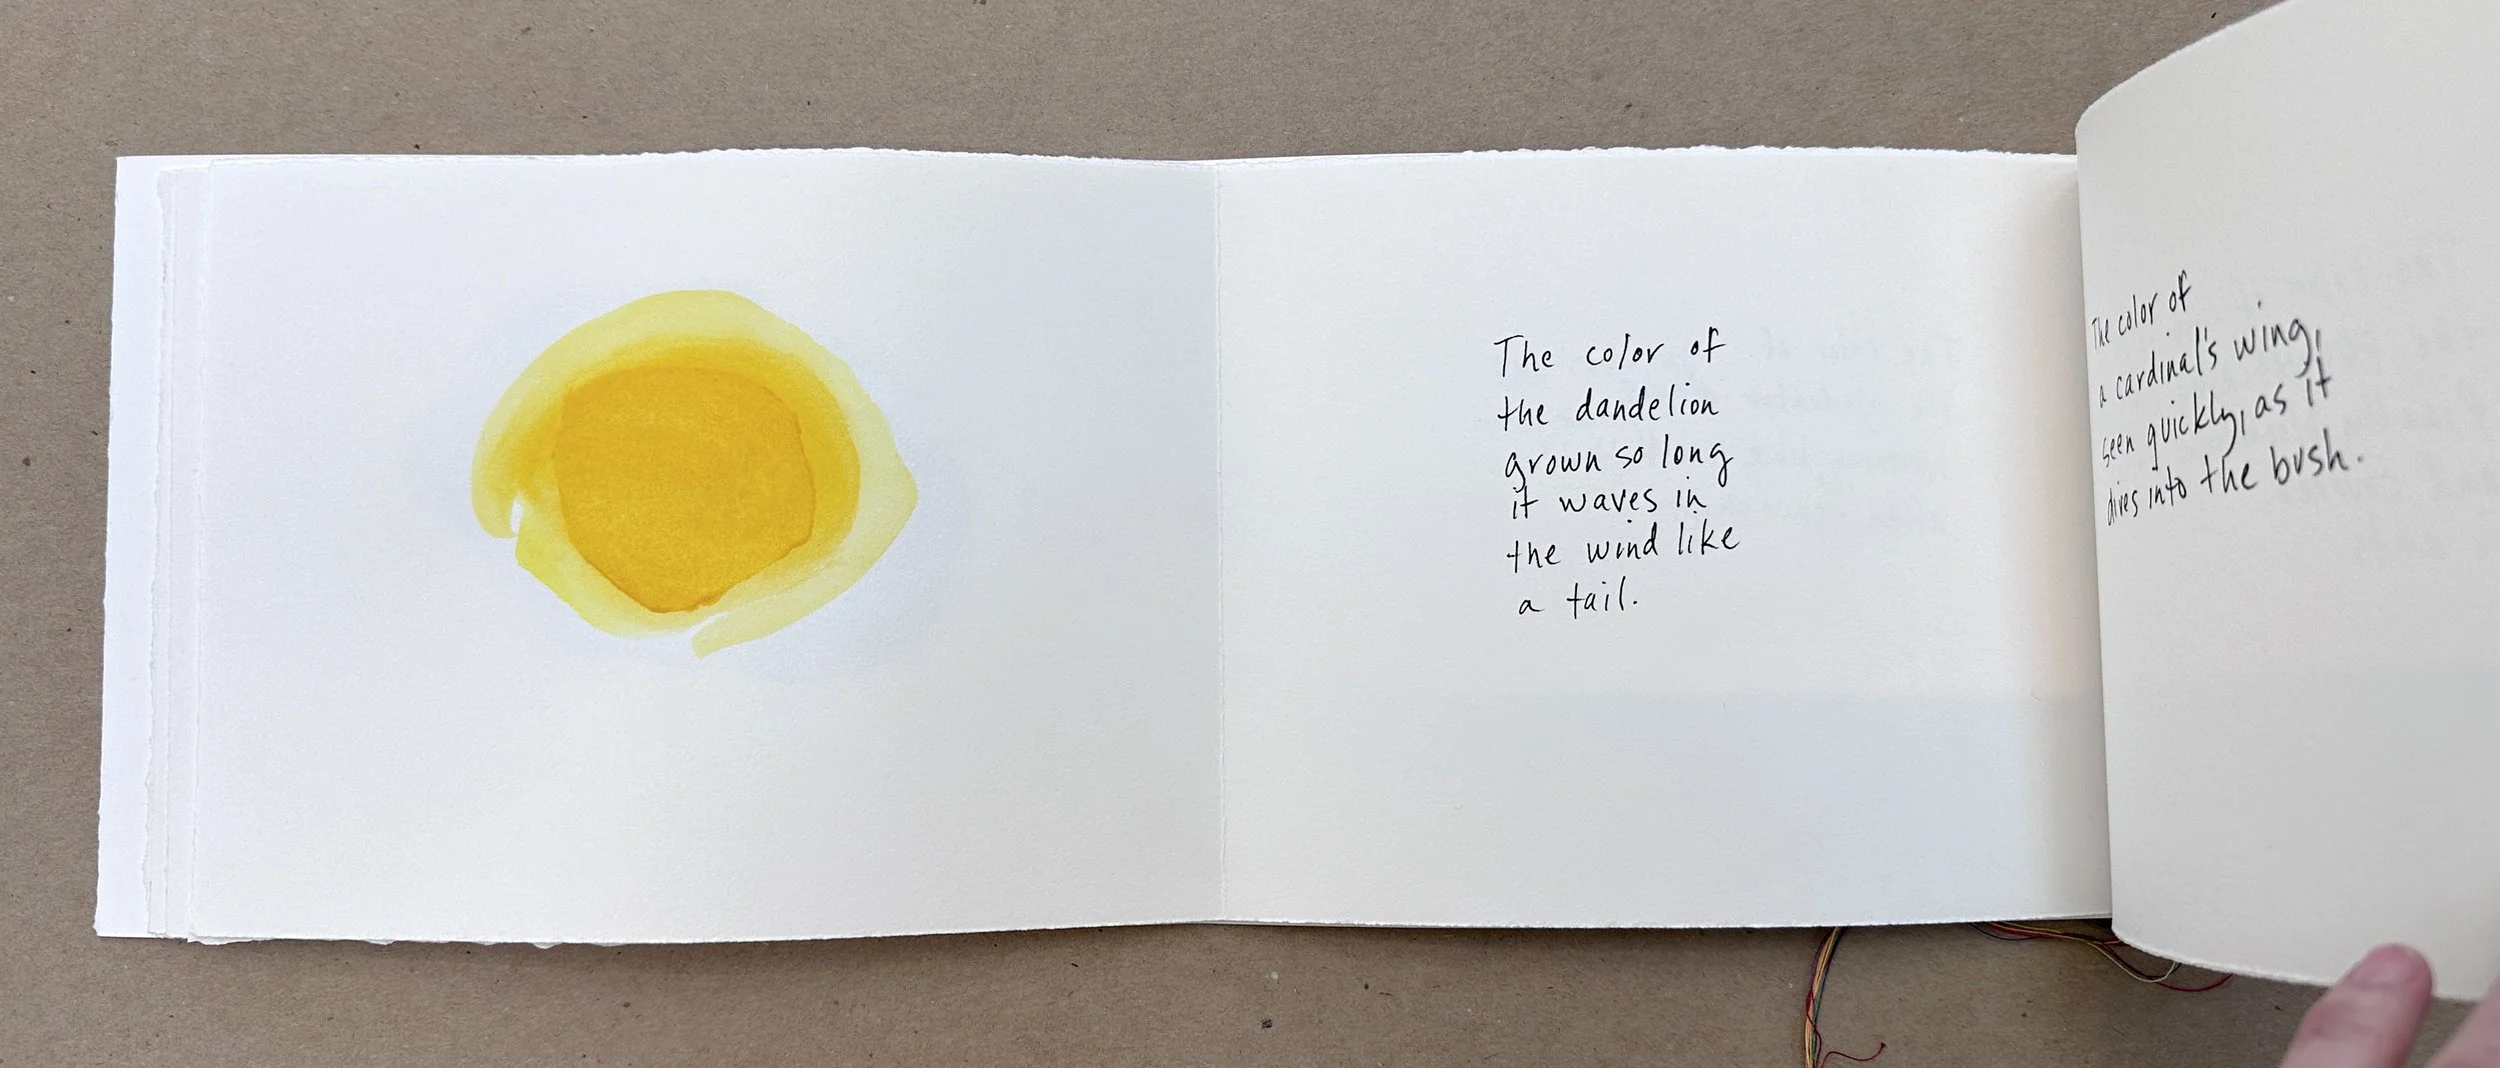 The color of
the dandelion
grown so long
it waves in
the wind like
a tail.
The color of
a cardinal's wing,
seen quickly, as it
dives into the bush.